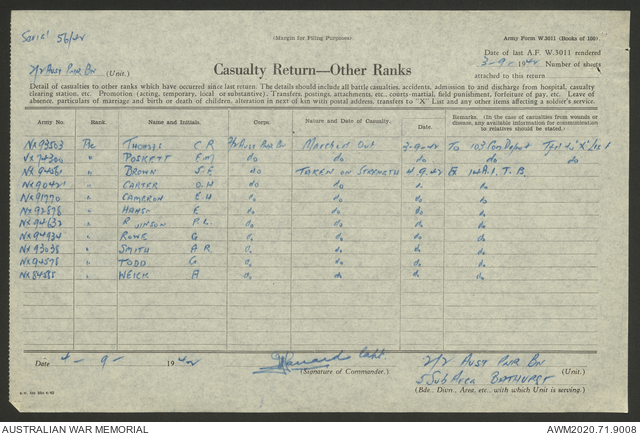 Serial 56/42
(Margin for Filing Purposes)
Army Form W.3011 (Books of 100).
Date of last A.F. W.3011 rendered
3-9-1942 Number of sheets
attached to this return
2/2 Aust Pnr Bn (Unit.)
Casualty Return—Other Ranks
Detail of casualties to other ranks which have occurred since last return. The details should include all battle casualties, accidents, admission to and discharge from hospital, casualty
clearing station, etc. Promotion (acting, temporary, local or substantive). Transfers, postings, attachments, etc., courts-martial, field punishment, forfeiture of pay, etc. Leave of
absence, particulars of marriage and birth or death of children, alteration in next of kin with postal address, transfers to "X" List and any other items affecting a soldier's service.
Army No. Rank. Name and Initials. Corps. Nature and Date of Casualty. Date. Remarks. (In the case of casualties from wounds or disease, any available information for communication to relatives should be stated.)
NX93503 Pte THOMAS C R 2/2 Aust Pnr Bn Marched Out 3-9-42 To 103 Gen Depot "X" List
POSKETT E.M do do do do do
BROWN S.E do TAKEN ON STRENGTH 4.9.42 I.T.B.
CARTER do do do do
NX91770 " CAMERON E.H do do do do
NX92878 " E do do do do
NX94632 " do do do do
NX94934 " ROWE G do do do do
NX93038 " SMITH A R do do do do
NX94578 " TODD G do do do do
NX84585 " WEICK A do do do do
Date 4-9-1942 Capt. 2/2 AUST PNR BN (Unit.)
(Signature of Commander.) 5 Sub Area BATHURST
(Bde., Divn., Area, etc., with which Unit is serving.)
AUSTRALIAN WAR MEMORIAL AWM2020.71.9008